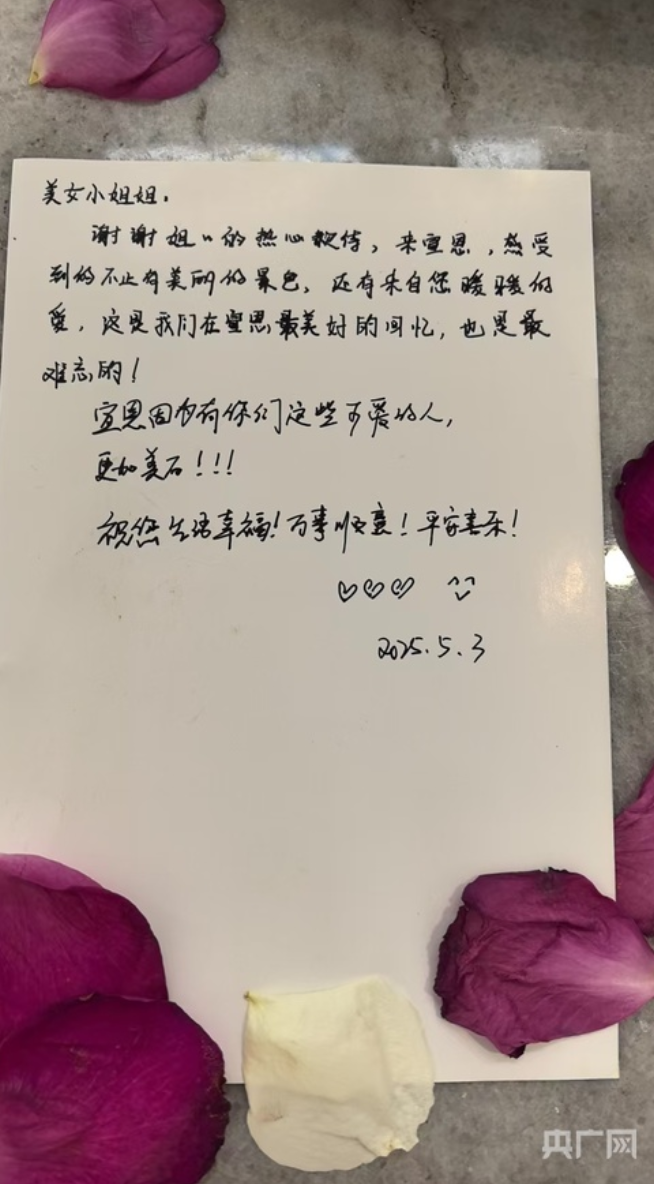 美女小姐姐.
谢谢姐〃的热心款待，来宣恩，感受
到的不止有美丽的景色，还有来自您暖暖的
爱，这是我们在宣恩最美好的回忆，也是最
难忘的！
宣恩因为有你们这些可爱的人，
更加美！！！
祝您生活幸福！万事顺意！平安喜乐！
♡♡♡ ^^
2025.5.3
央广网